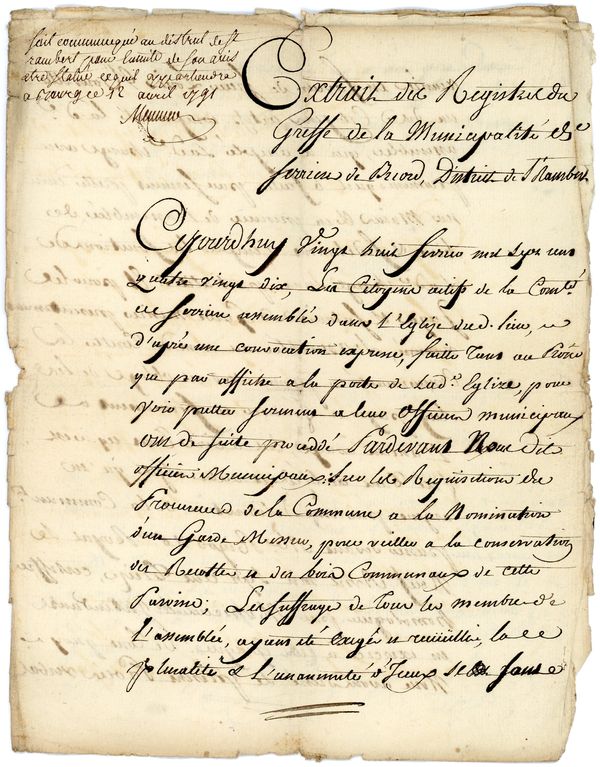 soit communiqué au district de st
rambert pour ensuite de son avis
etre statué ce qu'il appartiendra
a Bourg ce 12 avril 1791
Extrait des Registres du
Greffe de la Municipalité de
Serrieu de Briord, District de St Rambert
Cejourdhuy Vingt huit fevrier mil sept cens
quatre vingt dix, Les Citoyens actifs de la Comté.
de Serrieu assemblés dans l'Eglise dud. lieu,
d'après une convocation expresse, faitte tant au Prône
que par affiche a la porte de lad.e Eglize, pour
voir pretter serment a leur Officiers municipaux
ont de suite procedé Pardevant Nous dit
officiers Municipaux, sur les Requisitions du
Procureur de la Commune a la Nomination
d'un Garde Messier, pour veiller a la conservation
des Recoltes et des bois Communaux de cette
Paroisse; Les suffrages de tous les membres de
l'assemblée, ayans été exigés et recueillis, la
pluralité & l'unanimité d'Iceux se sont